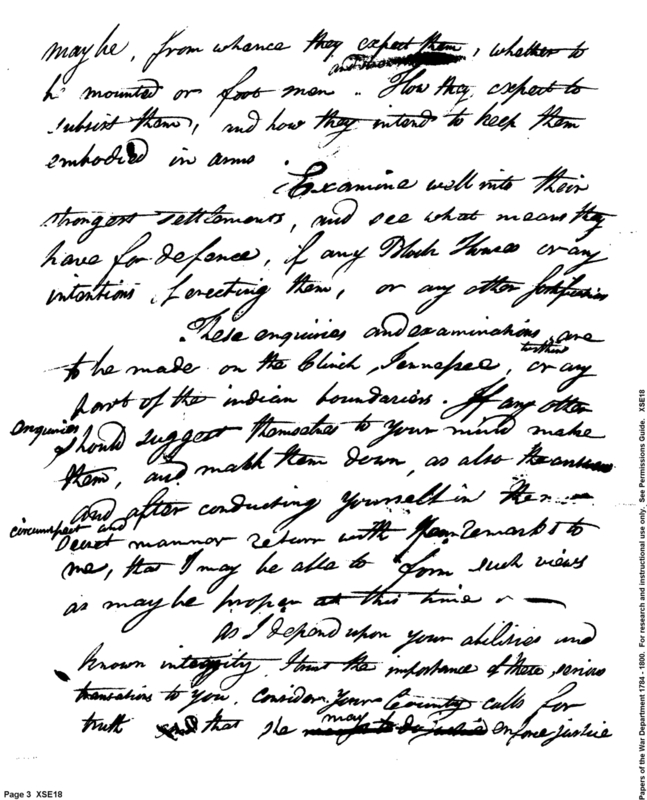 may be, from whance they expect them, whether to
be mounted or foot men. How they expect to
subsist them, and how they intend to keep them
embodied in arms.
Examine well into their
strongest settlements, and see what means they
have for defence, if any Block Houses or any
intentions of erecting them, or any other fortifications
These enquiries and examinations are
to be made on the Clinch, Tennesee, or any
part of the indian boundaries. If any other
enquiries should suggest themselves to your mind make
them, and mark them down, as also the answers
and after conducting yourself in the
circumspect and
Secret mannor return with your remarks to
me, that I may be able to form such views
as may be proper at this time
As I depend upon your abilities and
known integrity, I trust the importance of these serious
transations to you. Consider your Country calls for
truth and that she may enforce justice
Page 3 XSE18
Papers of the War Department 1784 - 1800. For research and instructional use only. See Permissions Guide. XSE18